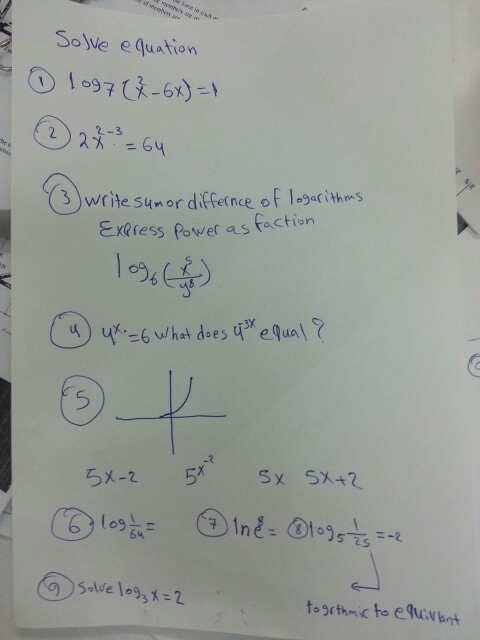 Solve equation
① log7 (x²-6x)=1
② 2x²-³ = 64
③ write sumor differnce of logarithms
Express power as faction
log₆(x⁵/y⁸)
④ 4ˣ·=6 what does 4⁻³ˣ equal?
⑤
5x-2 5x⁻² 5x 5x+2
⑥ log 1/64 = ⑦ lne⁸= ⑧ log₅ 1/25 = -2
⑨ solve log₃x=2